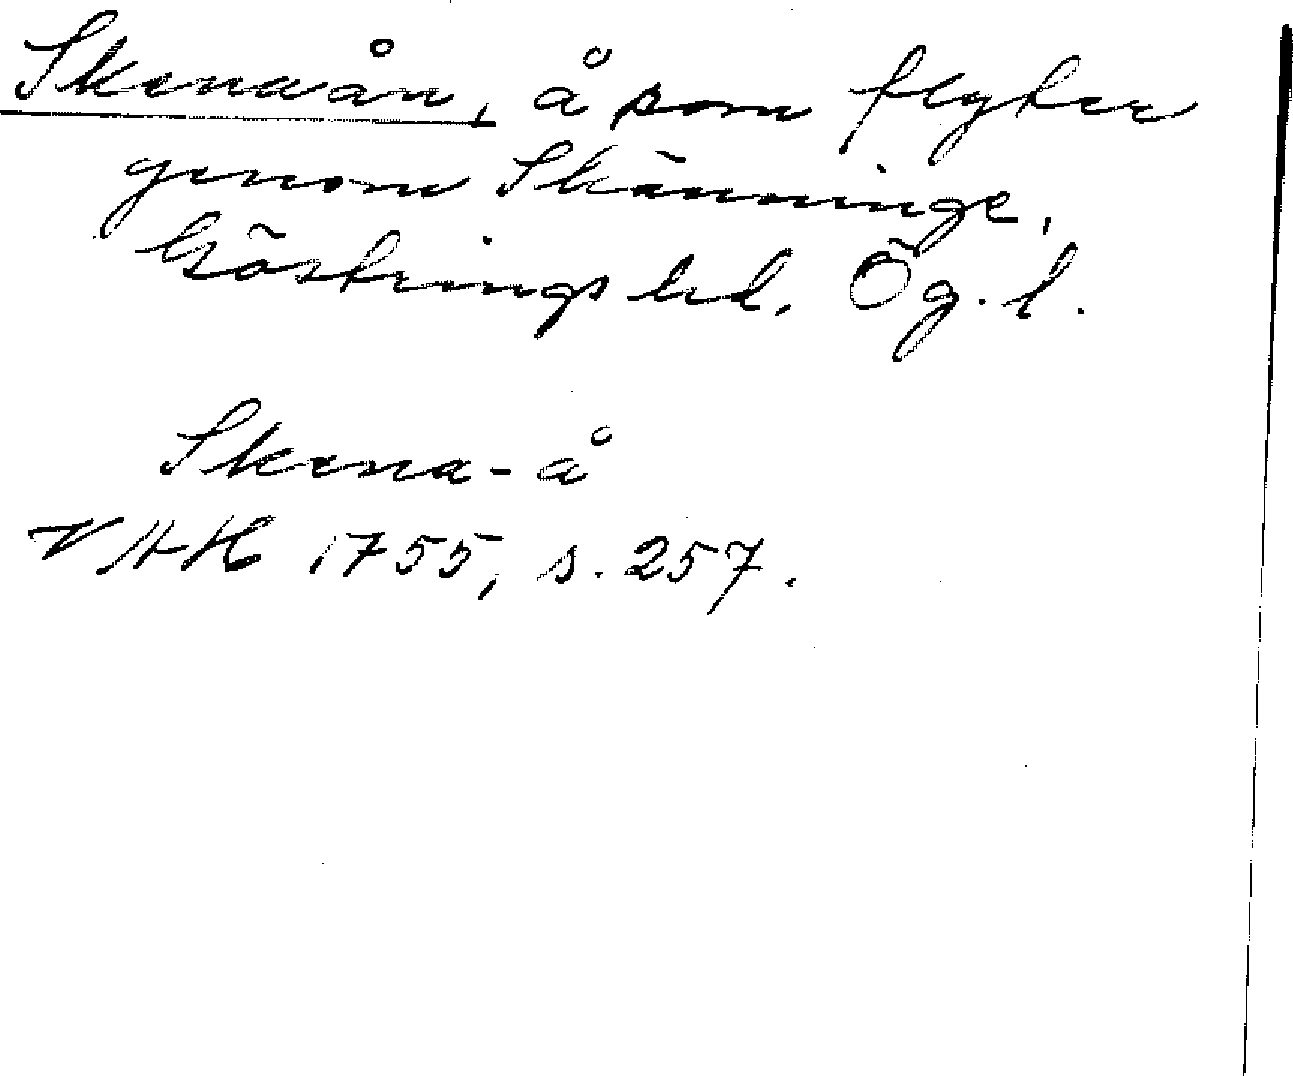 Skenaån, å som flyter
genom Skänninge,
Göstrings hd. Ög. l.
Skena-å
VAH 1755, s. 257.